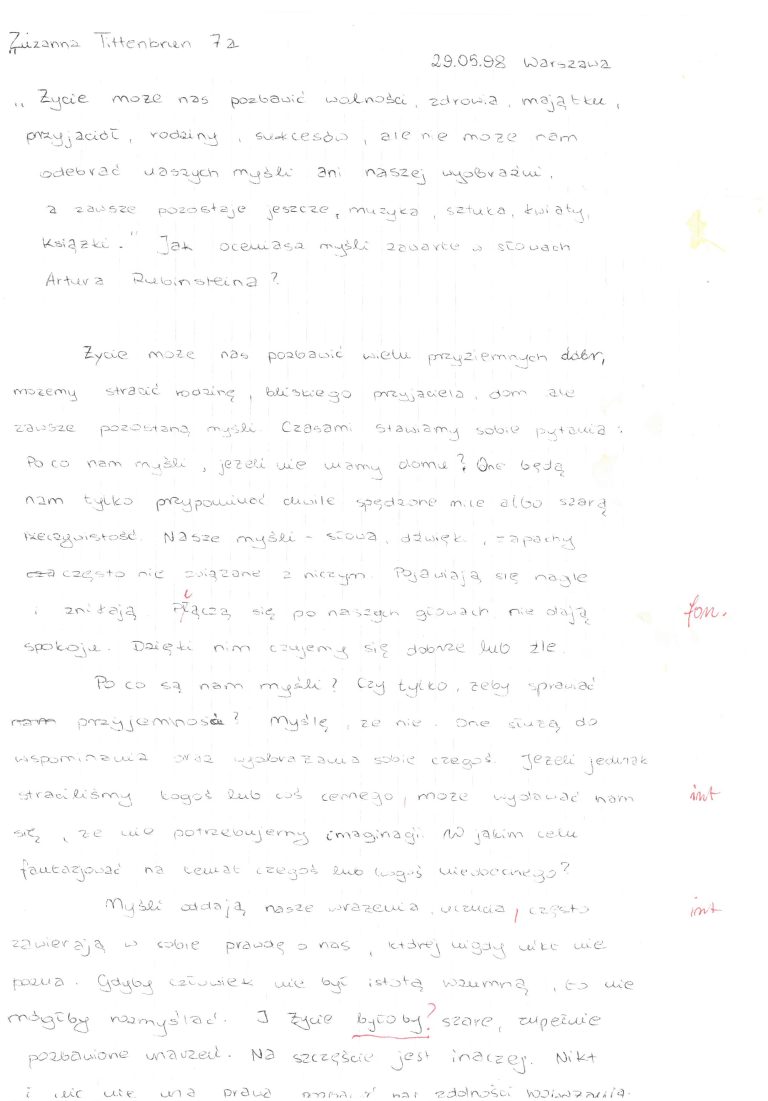 Zuzanna Tittenbrun 7a
29.05.98 Warszawa
„ Życie może nas pozbawić wolności, zdrowia, majątku,
przyjaciół, rodziny, sukcesów, ale nie może nam
odebrać naszych myśli ani naszej wyobraźni,
a zawsze pozostaje jeszcze, muzyka, sztuka, kwiaty,
książki." Jak oceniasz myśli zawarte w słowach
Artura Rubinsteina?
Życie może nas pozbawić wielu przyziemnych dóbr,
możemy stracić rodzinę, bliskiego przyjaciela, dom ale
zawsze pozostaną myśli. Czasami stawiamy sobie pytania:
Po co nam myśli, jeżeli nie mamy domu? One będą
nam tylko przypominać chwile spędzone mile albo szarą
rzeczywistość. Nasze myśli - słowa, dźwięk, zapachy
cza często nie związane z niczym. Pojawiają się nagle
i znikają. Plączą się po naszych głowach nie dają
fon.
spokoju. Dzięki nim czujemy się dobrze lub źle.
Po co są nam myśli? Czy tylko, żeby sprawiać
nam przyjemność? Myślę, że nie. One służą do
wspominania oraz wyobrażania sobie czegoś. Jeżeli jednak
straciliśmy kogoś lub coś cennego, może wydawać nam
int
się, że nie potrzebujemy imaginacji. W jakim celu
fantazjować na temat czegoś lub kogoś nieobecnego?
Myśli oddają nasze wrażenia, uczucia, często
int
zawierają w sobie prawdę o nas, której nigdy nikt nie
pozna. Gdyby człowiek nie był istotą rozumną, to nie
mógłby rozmyślać. I życie byłoby? szare, zupełnie
pozbawione marzeń. Na szczęście jest inaczej. Nikt
i nic nie ma prawa nas zdolności